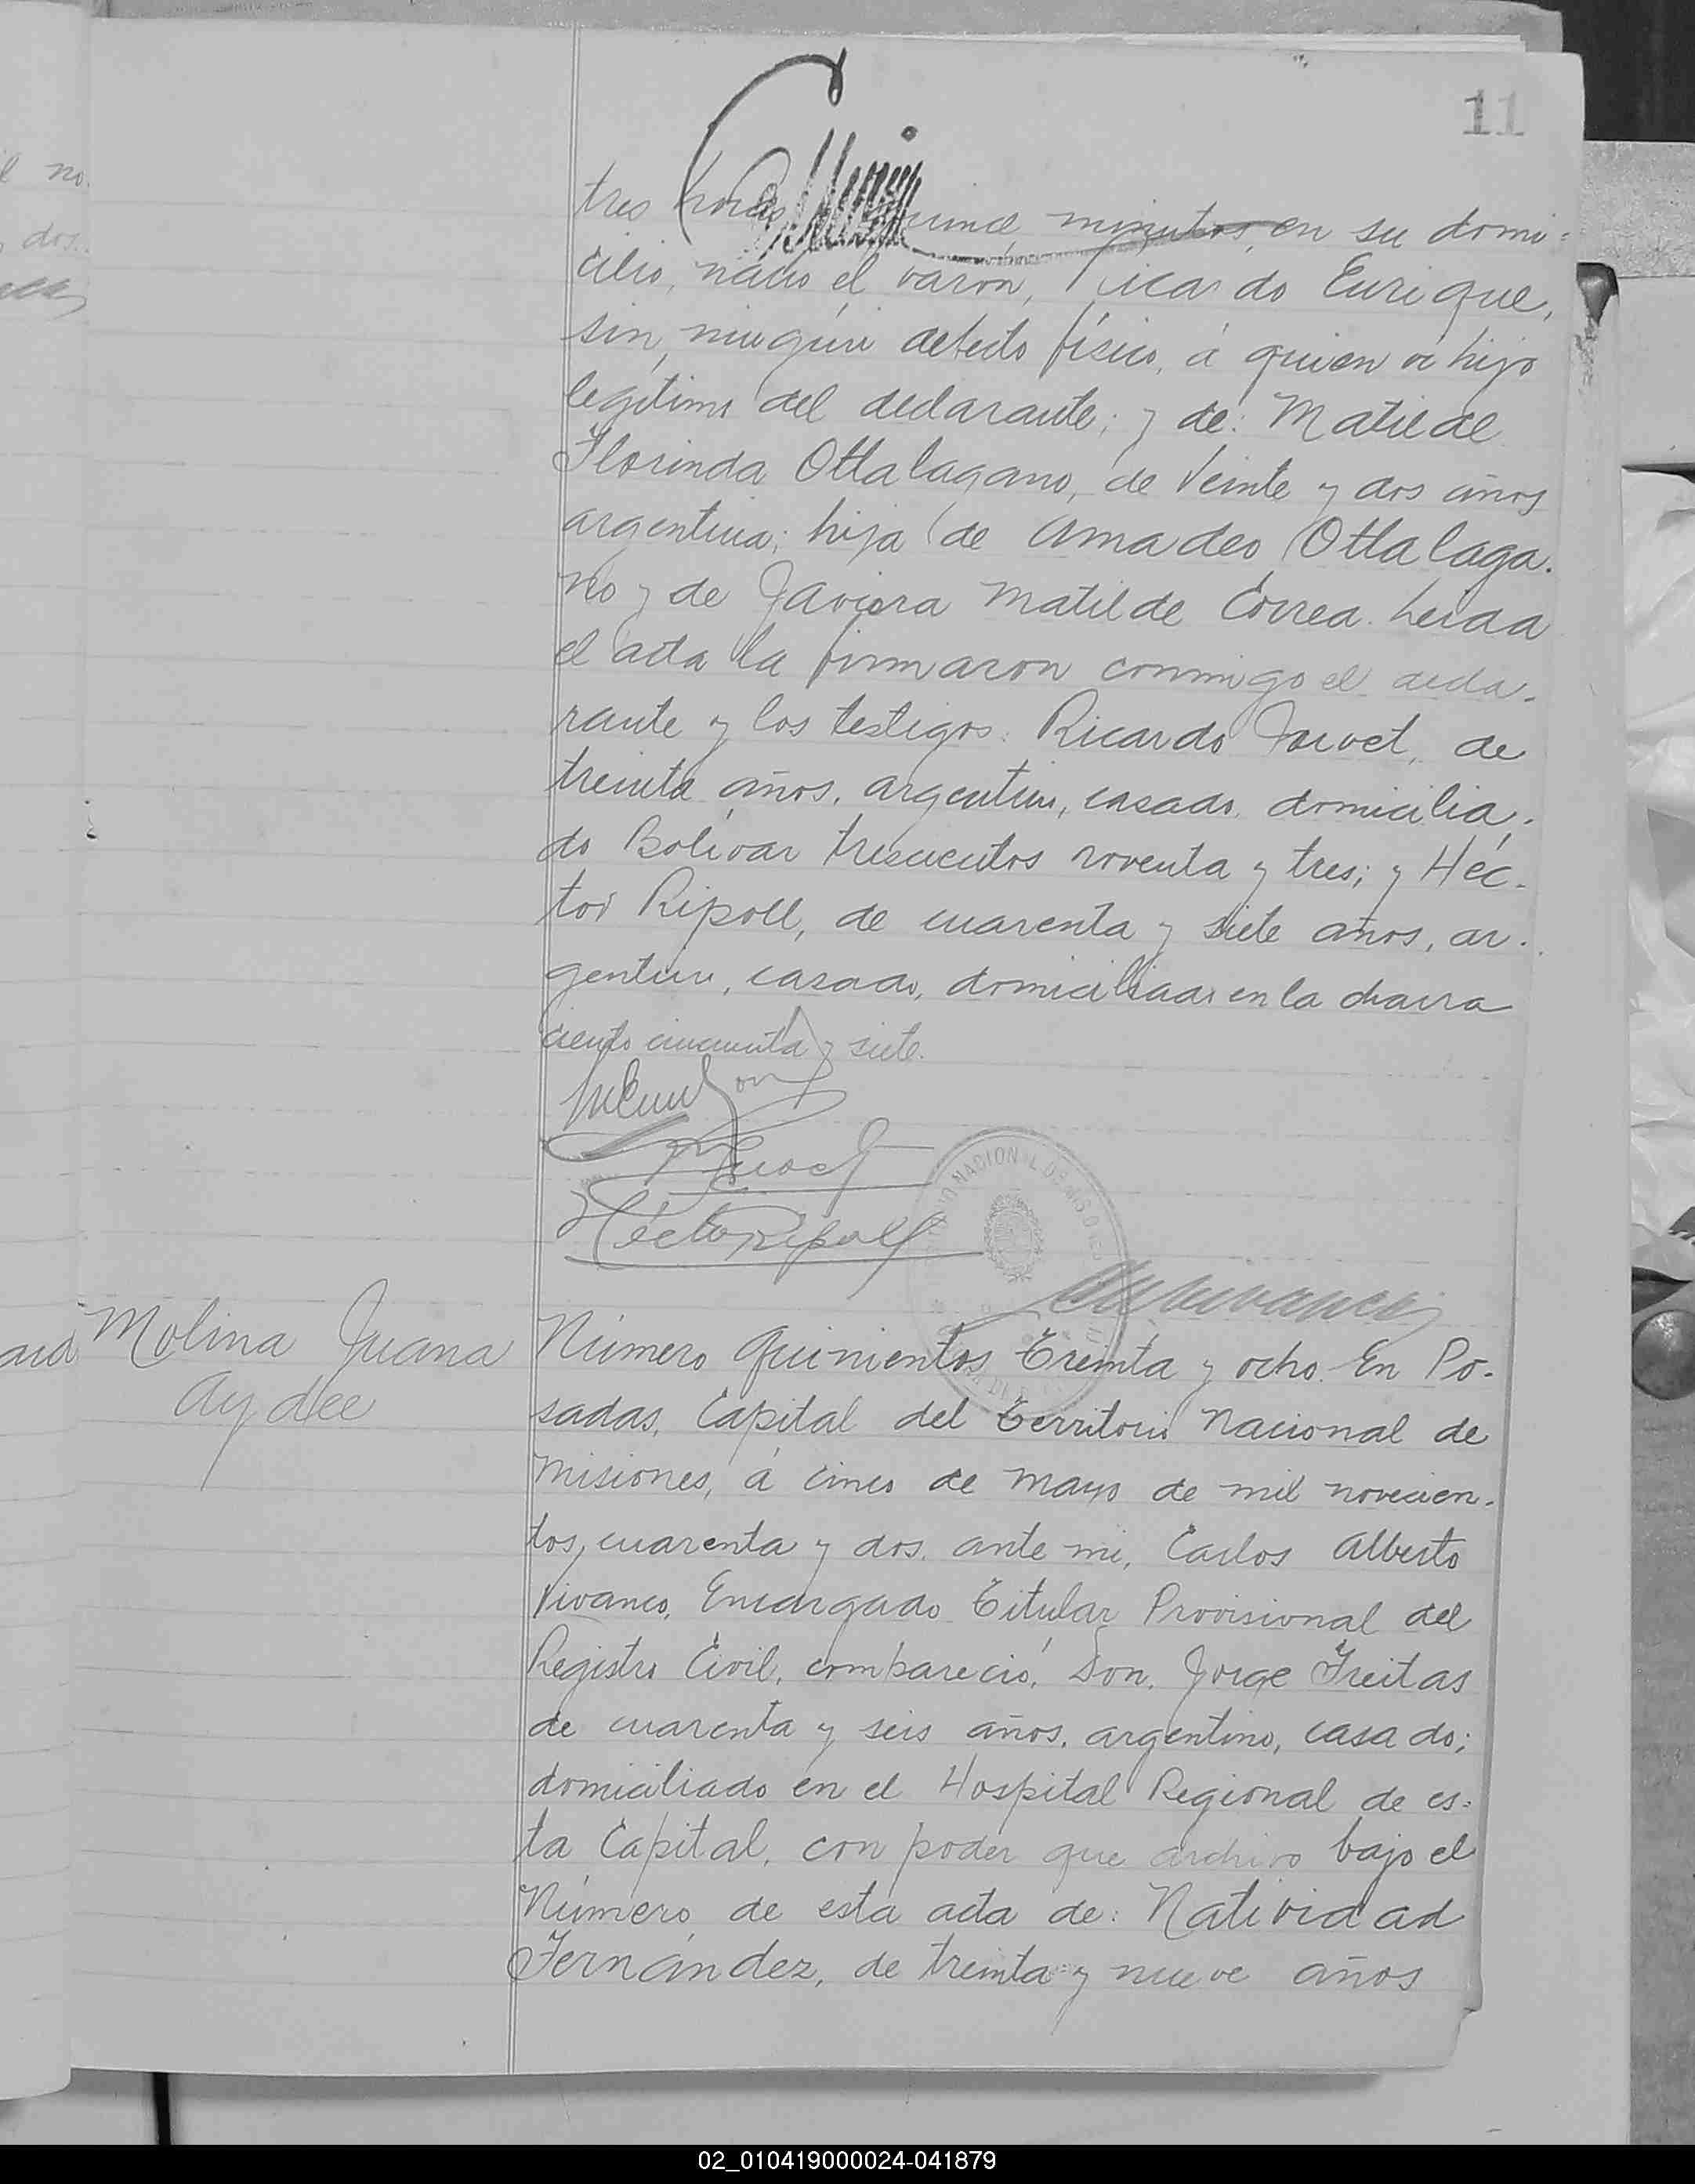 11
tres horas quince minutos, en su domi=
cilio, nació el varón, Ricardo Enrique,
sin ningún defecto físico, á quien ví hijo
legítimo del declarante; y de: Matilde
Florinda Ottalagano, de veinte y dos años
argentina; hija de Amadeo Ottalaga.
no y de Javiera Matilde Correa. Leida
el acta la firmaron conmigo el decla.
rante y los testigos: Ricardo de
treinta años, argentino, casado, domicilia.
do Bolívar trescientos noventa y tres; y Héc.
tor Ripoll, de cuarenta y siete años, ar.
gentino, casado, domiciliado en la chacra
ciento cincuenta y siete.
Héctor Ripoll
Molina Juana
Aydee
Número quinientos treinta y ocho. En Po.
sadas, Capital del Territorio Nacional de
Misiones, á cinco de Mayo de mil novecien.
tos, cuarenta y dos, ante mi, Carlos Alberto
Vivanco, Encargado Titular Provisional del
Registro Civil, compareció, Don, Jorge Freitas
de cuarenta y seis años, argentino, casado;
domiciliado en el Hospital Regional de es=
ta Capital, con poder que archivo bajo el
Número de esta acta de: Natividad
Fernández, de treinta y nueve años
02_010419000024-041879